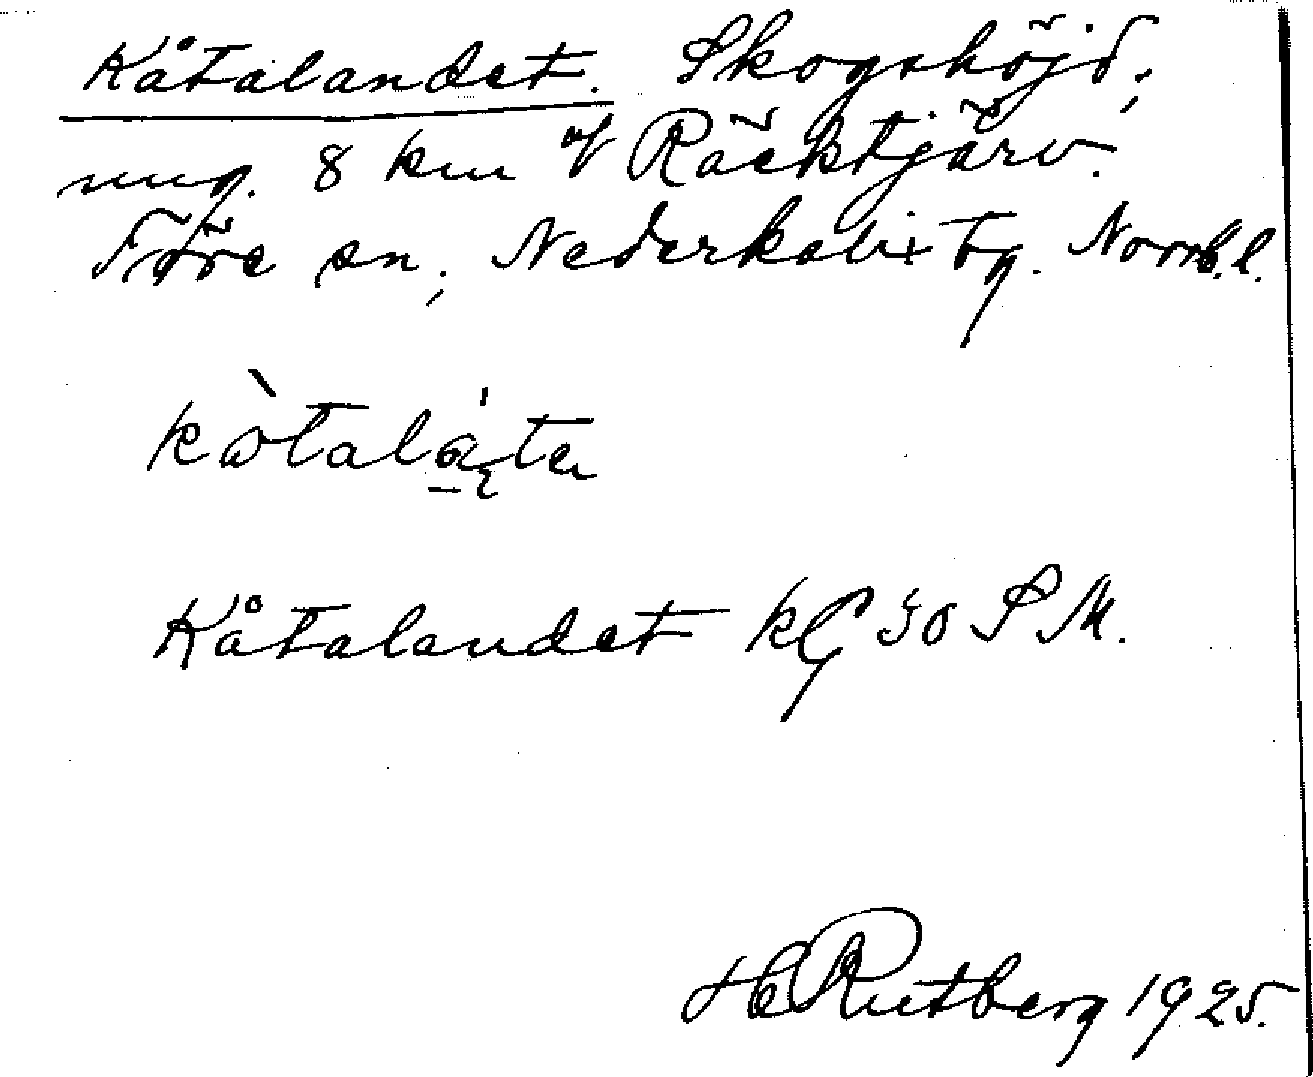 Kåtalandet. Skogshöjd,
ung. 8 km af Räcktjärv.
Töre sn, Nederkalix tg. Norrb.l.
kåtalánta
Kåtalandet kf 30 SM.
H Rutberg 1925.